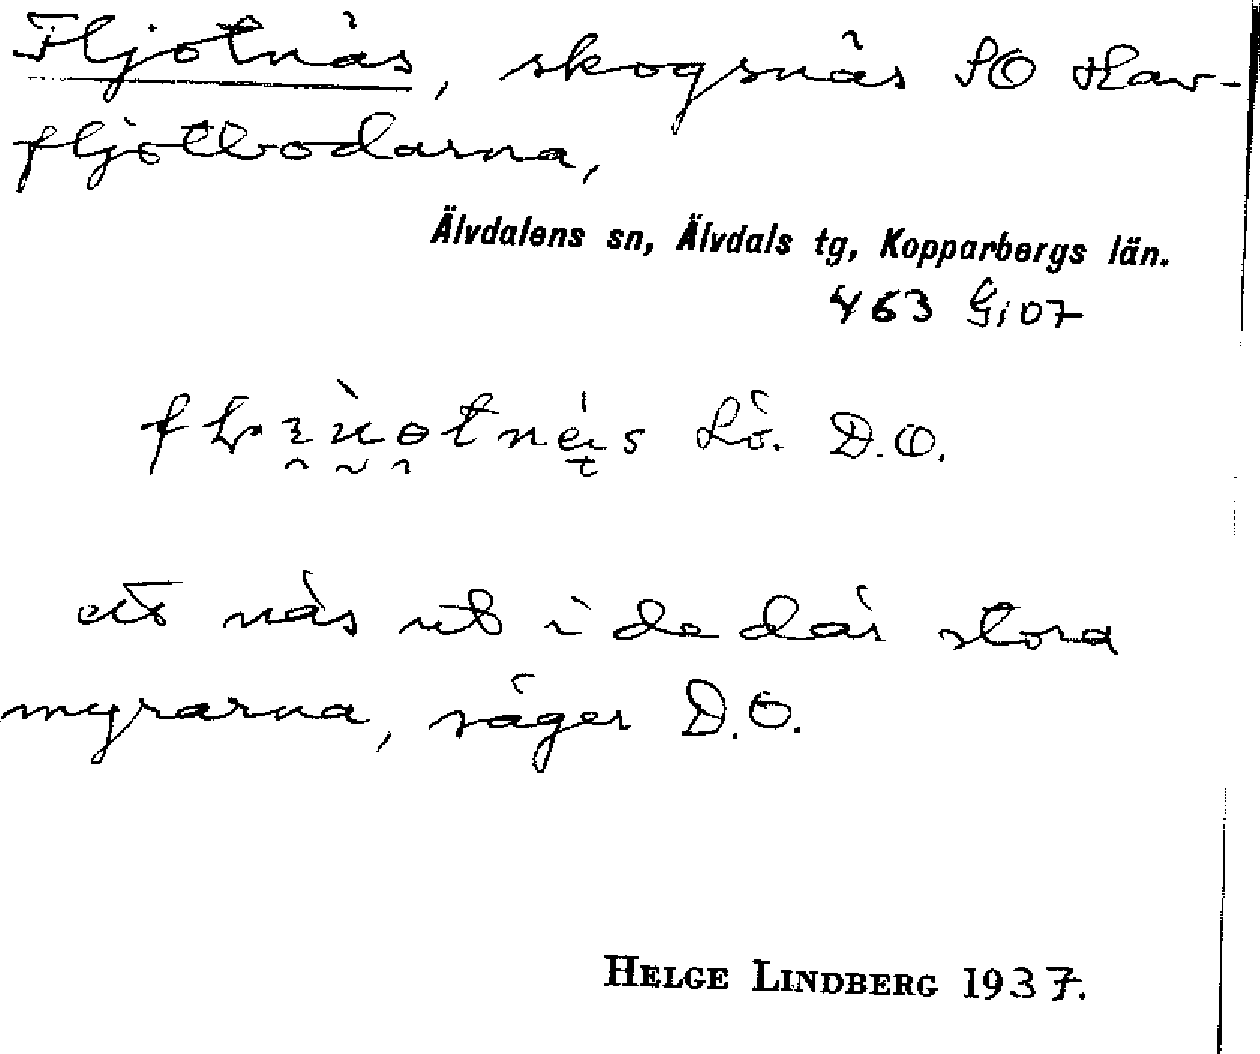 Fljotnäs, skogsnäs SO Hav-
fljotbodarna,
Älvdalens sn, Älvdals tg, Kopparbergs län.
463 Gi 07
Lö. D.O.
ett näs ut i de där stora
myrarna, säger D.O.
HELGE LINDBERG 1937.